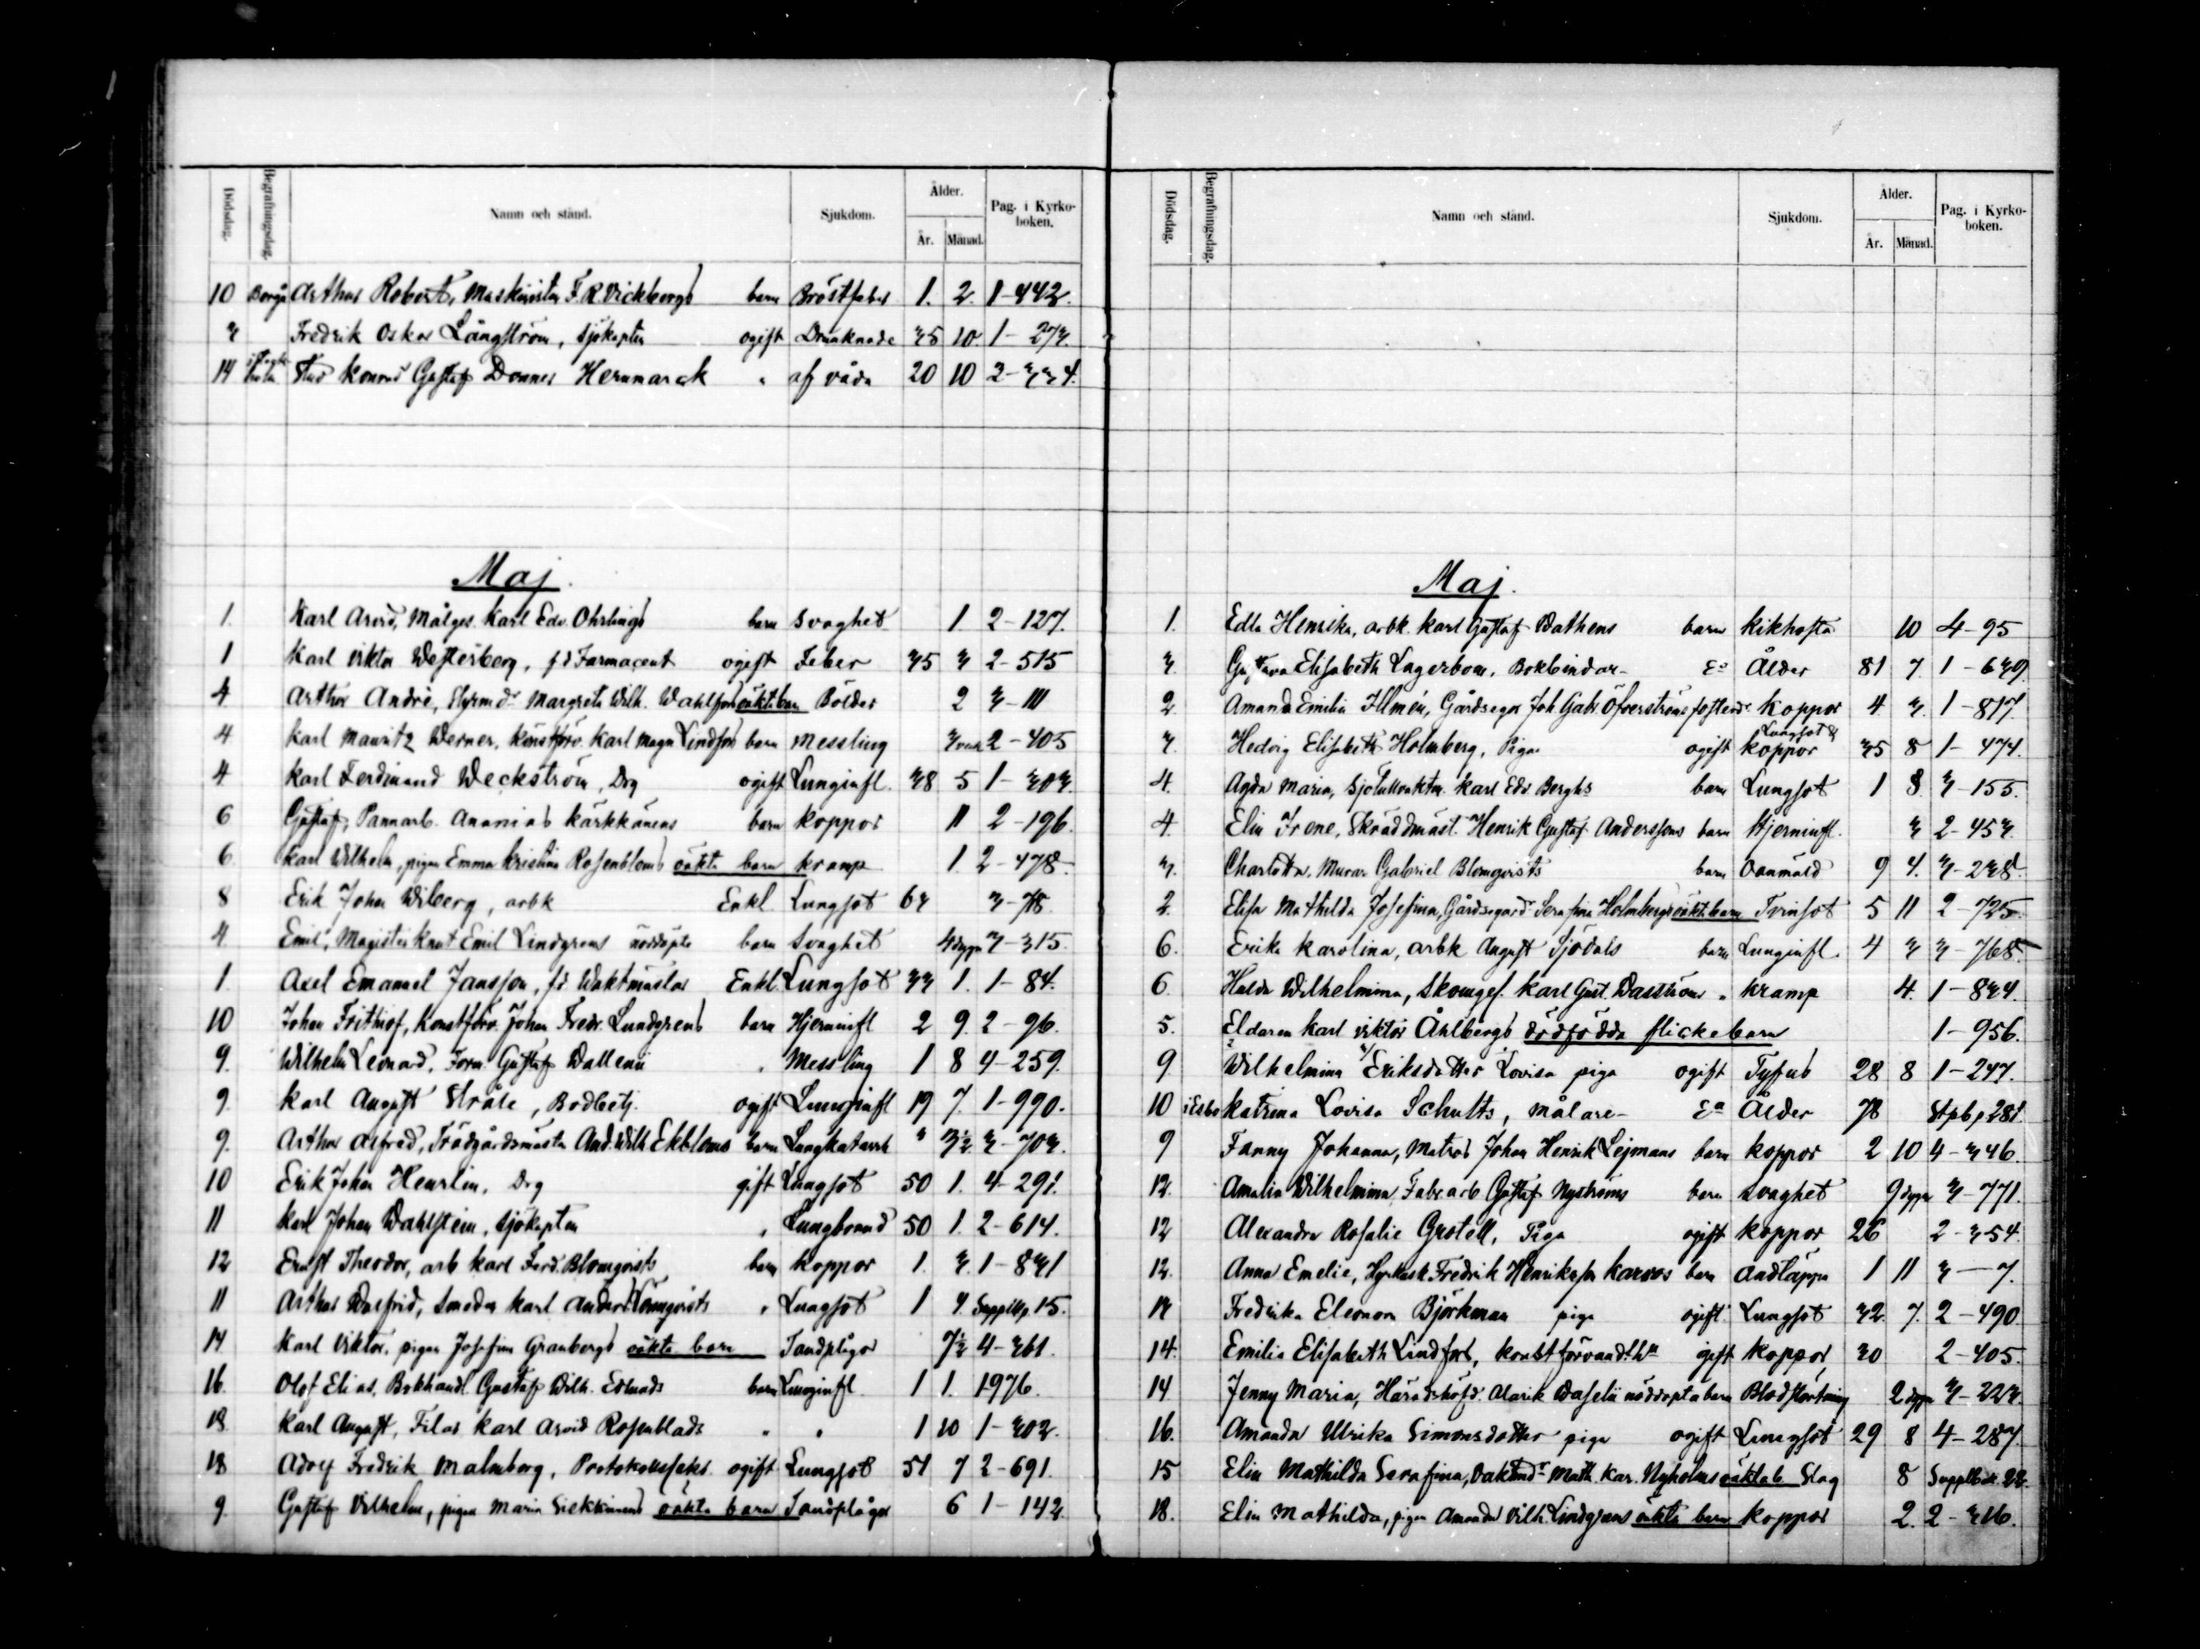 Dödsdag. Begrafningsdag. Namn och stånd. Sjukdom. Ålder. År. Månad. Pag. i Kyrkoboken.
10 Borgå Arthur Robert, Maskinisten F. R. Vickbergs barn Bröstfeber 1. 2. 1-442.
3 Fredrik Oskar Långström, Sjökapten ogift Drunknade 35 10. 1-273.
14 Stud Konrad Gustaf Donner Hernmarck " af våda 20 10 2-334.
Maj.
1. Karl Arvid, Målges. Karl Edv. Ohrlings barn Svaghet 1. 2-127.
1 Karl Viktor Westerberg, f.d Farmaceut ogift Feber 35 3 2-515
4 Arthur André, Margreta Wilh. Wahlfors oäkta barn Bölder 2 3-111
4 Karl Mauritz Werner, Konstförv. Karl Magn Lindfors barn Messling 3 veck 2-405
4 Karl Ferdinand Weckström, Drg ogift Lunginfl. 38 5 1-303
6 Gustaf, Pannarb. Ananias Kärkkänens barn Koppor 11 2-196.
6. Karl Wilhelm, pigan Emma Kristina Rosenbloms oäkta barn Kramp 1. 2-478.
8 Erik Johan Wiberg, arbk Enkl. Lungsot 63 3-78.
4 Emil, Magister Knut Emil Lindgrens nöddöpte barn Svaghet 4 dygn 3-315.
1 Axel Emanuel Jansson, f.d Waktmästar Enkl. Lungsot 33 1. 1-84.
10 Johan Frithiof, Konstförv. Johan Fredr. Lundgrens barn Hjerninfl 2 9. 2-96.
9. Wilhelm Leonard, Form. Gustaf Wallenii " Messling 1 8 4-259.
9. Karl August Stråle, Bodbetj. ogift Lunginfl 19 7. 1-990.
9. Arthur Alfred, Trädgårdsmästar And. Wilh Ekbloms barn Lungkatarrh " 3½ 3-703.
10 Erik Johan Heurlin, Drg gift Lungsot 50 1. 4-291.
11 Karl Johan Wahlstein, Sjökapten " Lungbrand 50 1. 2-614.
12 Ernst Theodor, arb Karl Ferd. Blomqvists barn Koppor 1. 3. 1-831
11 Arthur Walfrid, Smeden Karl Anders Lönnqvists " Lungsot 1 4. Supplbp 15.
14 Karl Viktor, pigan Josefina Granbergs oäkta barn Tandplågor 7½ 4-361.
16. Olof Elias, Bokhandl. Gustaf Wilh. Edlunds barn Lunginfl 1 1. 1976.
18 Karl August, Filar Karl Arvid Rosenblads " " 1 10 1-302.
18 Adolf Fredrik Malmberg, Protokollssekr. ogift Lungsot 51 7 2-691.
9. Gustaf Vilhelm, pigan Maria Siekkinens oäkta barn Tandplågor 6 1-142.
Dödsdag. Begrafningsdag. Namn och stånd. Sjukdom. Ålder. År. Månad. Pag. i Kyrkoboken.
Maj.
1. Edla Henrika, arbk. Karl Gustaf Wathens barn Kikhosta 10 4-95
3. Gustava Elisabeth Lagerbom, Bokbindar- Ea Ålder 81 7. 1-639.
2 Amanda Emilia Ilmén, Gårdsegar Joh Gabr Öfverströms fosterd. Koppor 4 3. 1-817.
3. Hedvig Elisabeth Holmberg, Piga ogift Lungsot & Koppor 35 8 1-474.
4. Agda Maria, Sjötullvaktm. Karl Edv. Berghs barn Lungsot 1 8. 3-155.
4. Elin Irene, Skräddmäst. Henrik Gustaf Anderssons barn Hjerninfl. 3 2-453.
3. Charlotta, Murar Gabriel Blomqvists barn Oanmäld 9 4. 3-238.
2. Elisa Mathilda Josefina, Gårdsegard. Serafina Holmbergs oäkt. barn Tvinsot 5 11 2-725.
6. Erika Karolina, arbk August Sjödals barn Lunginfl. 4 3 3-768.
6. Hulda Wilhelmina, Skomges. Karl Gust. Waström " Kramp 4. 1-834.
5. Eldaren Karl Viktor Åhlbergs dödfödda flickebarn 1-956.
9 Wilhelmina Eriksdotter Lovisa piga ogift Tyfus 28 8 1-247.
10 i Esbo Katrina Lovisa Schults, målare- Ea Ålder 78 Stpb p 281.
9 Fanny Johanna, Matros Johan Henrik Lejmans barn Koppor 2 10 4-346.
12. Amalia Wilhelmina, Fabr.arb Gustaf Nyströms barn Svaghet 9 dygn 3-771.
12 Alexandra Rosalie Grotell, Piga ogift Koppor 26 2-354.
12. Anna Emelie, Hyrkusk Fredrik Henriksson Karvos barn Andtäppa 1 11 3-7.
13 Fredrika Eleonora Björkman piga ogift. Lungsot 32. 7. 2-490
14. Emilia Elisabeth Lindfors, Konstförvandt.hu gift Koppor 30 2-405.
14 Jenny Maria, Häradshöfd. Alarik Waselii nöddöpta barn Blodstörtning 2 dygn 3-223.
16. Amanda Ulrika Simonsdotter piga ogift Lungsot 29 8 4-287.
15 Elin Mathilda Serafina, Math. Kar. Nyholms oäkta b Slag 8 Supplbok 22.
18. Elin Mathilda, pigan Amanda Vilh. Lindgrens oäkta barn Koppor 2. 2-316.